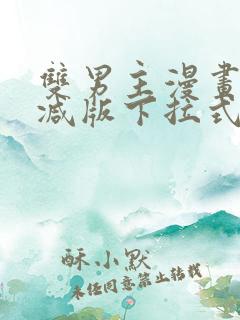 雙男主漫畫
减版下拉式
酥小默
未任同意禁止转载